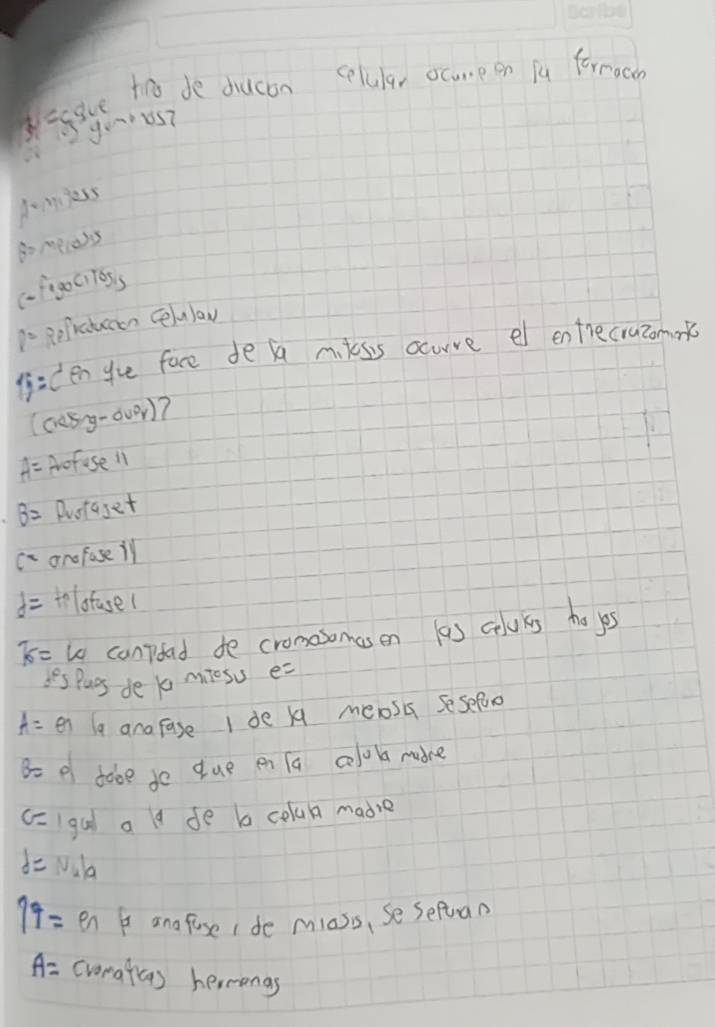 Scribe
que tipo de diucon celular ocurre en la formacon
A= mitoss
B= meiosis
C- fagocitosis
D= Reproduccion celular
15=¿en que face de la mitosis ocurre el entrecruzamiento
(crosing-over)?
A= Profase II
B=
C= anafase II
d= telofase I
16= la cantidad de cromosomas en las celulas hajas
despues de la mitosis e=
A= en la anafase I de la meiosis se sepra
B= el doboe de que en la celula madre
C= igual a la de la celula madre
d= Nula
17= en la anafase I de miosis, se separan
A= cromaticas hermanas